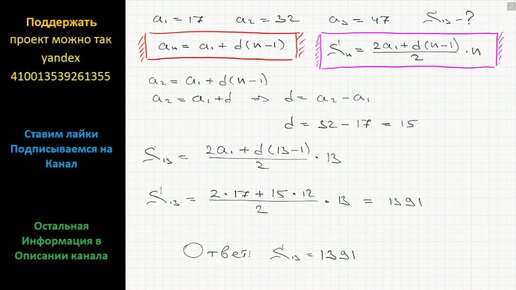 Поддержать
проект можно так
yandex
410013539261355
Ставим лайки
Подписываемся на
Канал
Остальная
Информация в
Описании канала
a₁ = 17 a₂ = 32 a₃ = 47 S₁₃ - ?
aₙ = a₁ + d(n-1)
Sₙ = (2a₁ + d(n-1))/2 · n
a₂ = a₁ + d(n-1)
a₂ = a₁ + d ⇒ d = a₂ - a₁
d = 32 - 17 = 15
S₁₃ = (2a₁ + d(13-1))/2 · 13
S₁₃ = (2·17 + 15·12)/2 · 13 = 1391
Ответ: S₁₃ = 1391